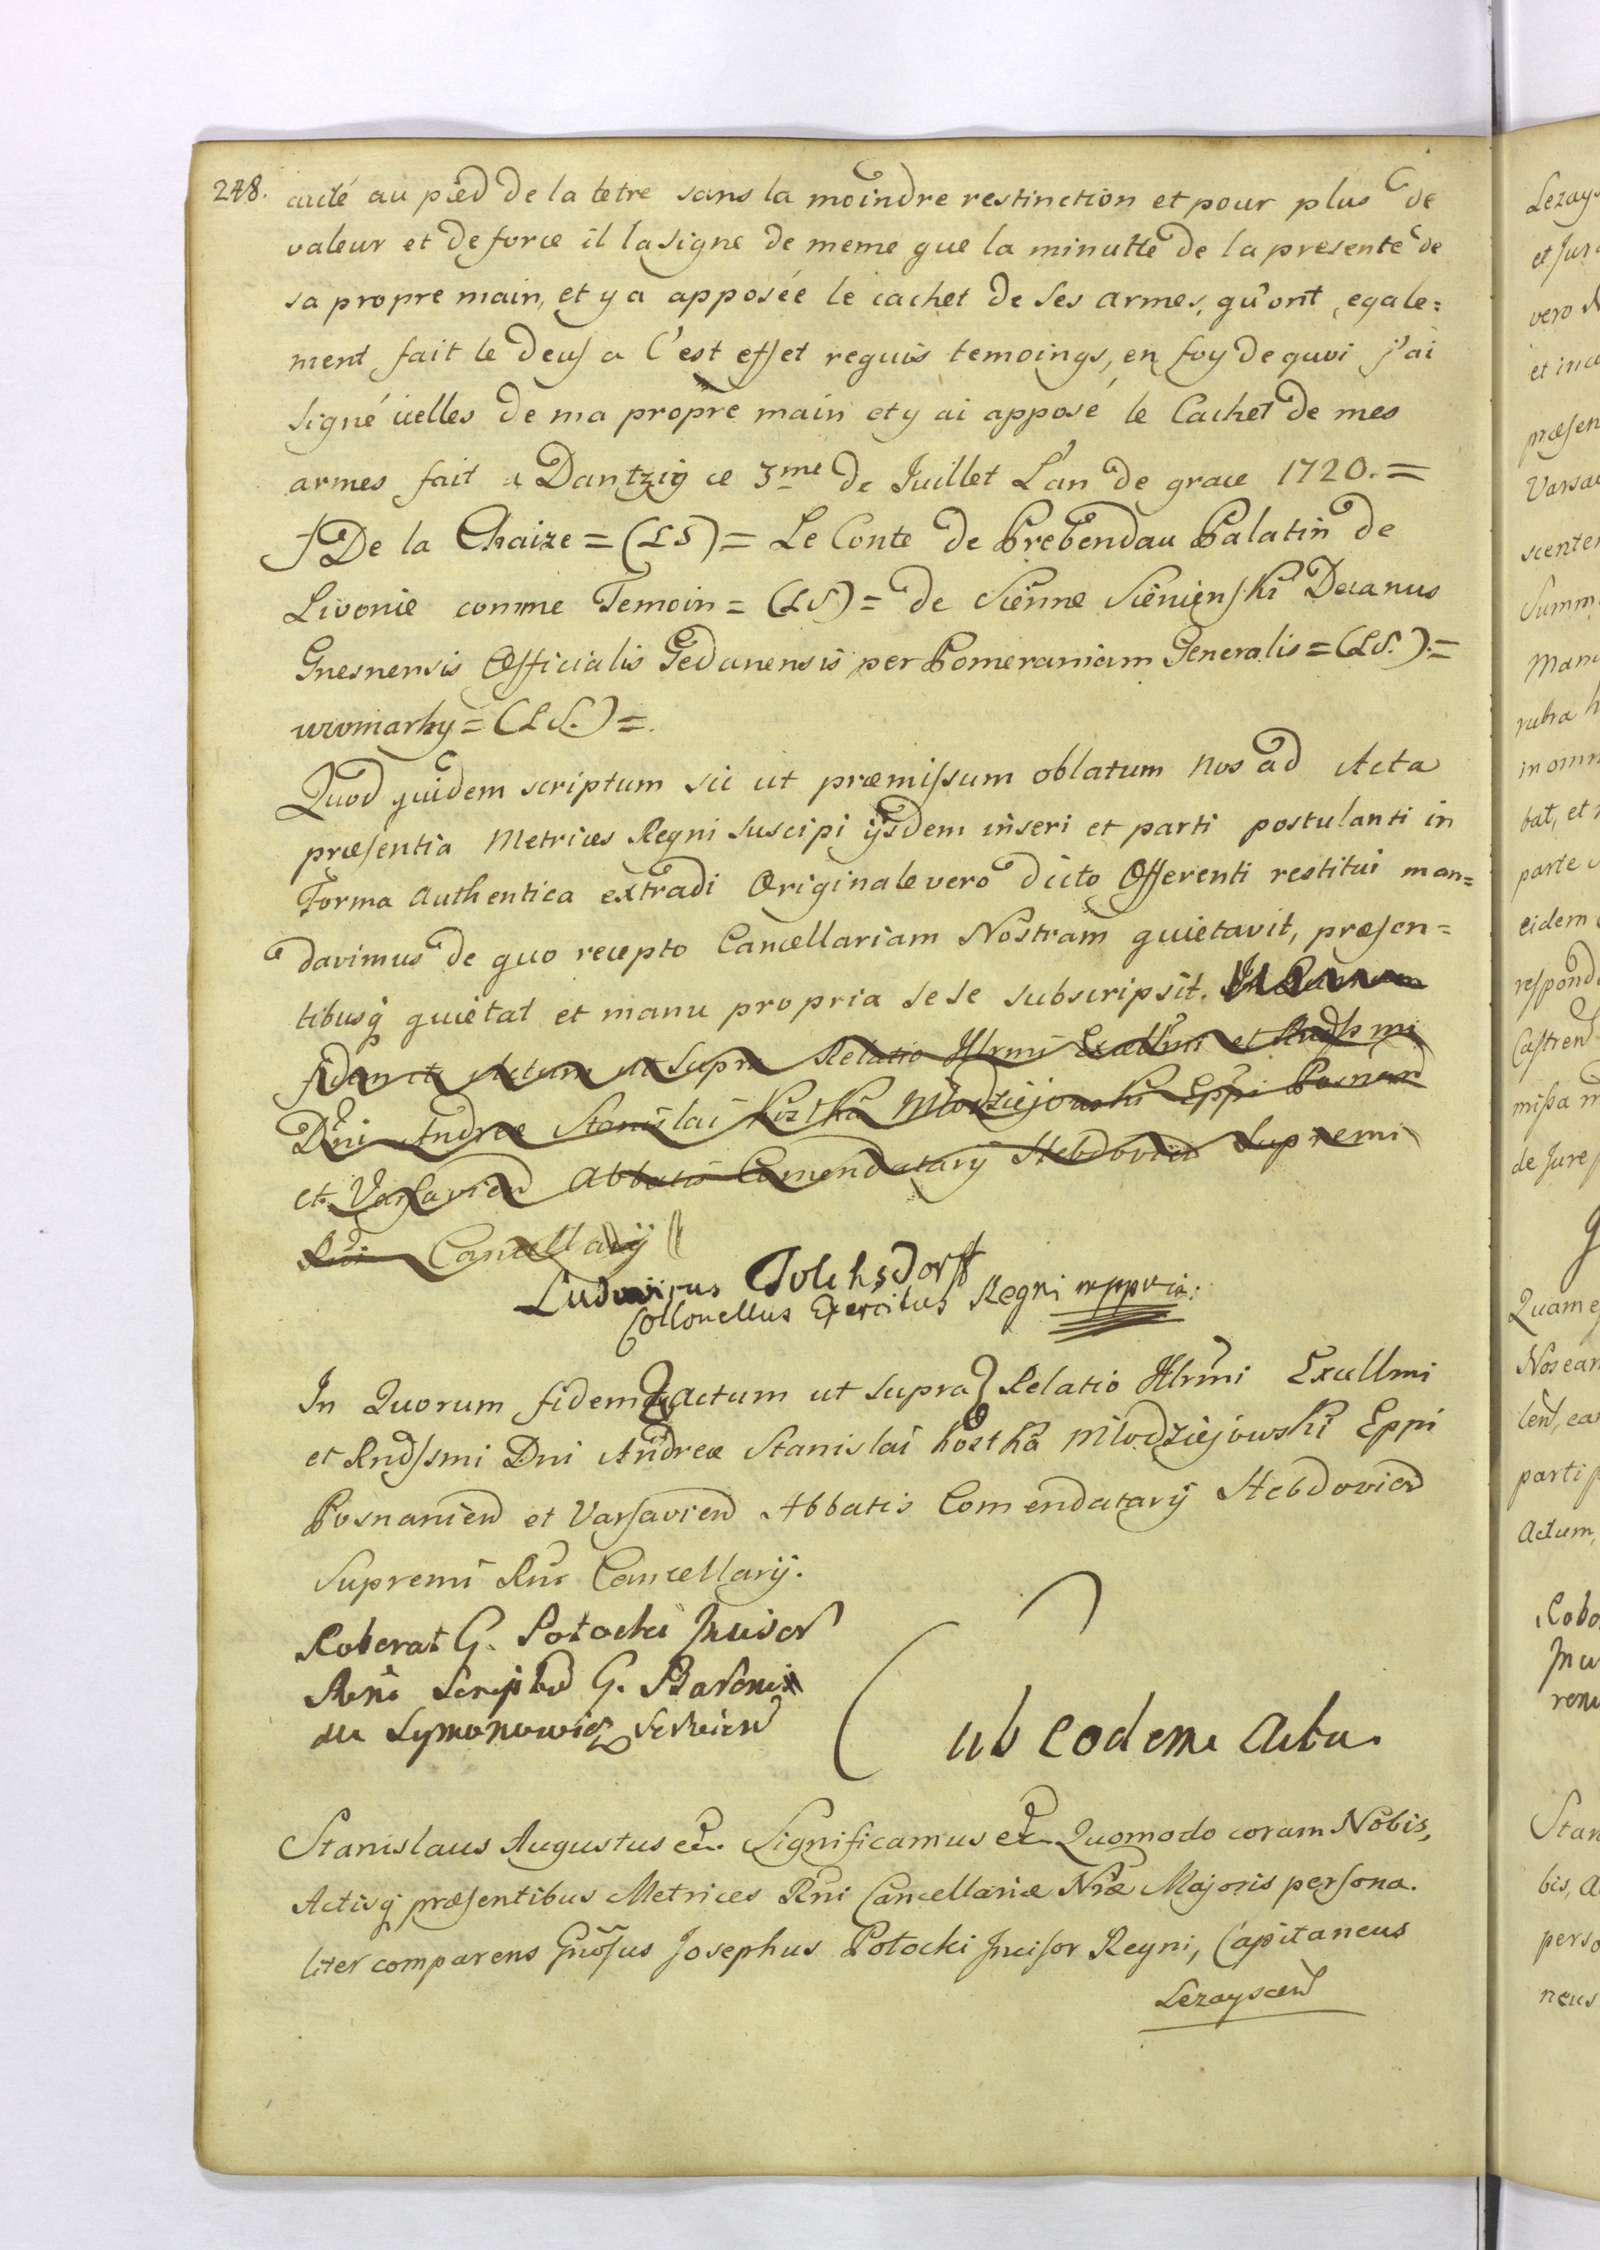 248.
cuté au pied de la letre sans la moindre restinction et pour plus de
valeur et de force il la signe de meme que la minutte de la presente de
sa propre main, et y a apposée le cachet de ses armes, qu'ont egale=
ment fait le deuſ a C'est effet requis temoings, en foy de quoi j'ai
signé icelles de ma propre main et y ai apposé le Cachet de mes
armes fait a Dantzig ce 3me de Juillet L'an de grace 1720. =
De la Chaize = (LS) = Le Conte de Prebendau Palatin de
Livonie comme Temoin = (LS) = de Sienne Sienienſki Decanus
Gnesnensis Officialis Gedanensis per Pomeraniam Generalis = (LS.) =
= (LS.) =.
Quod quidem scriptum sic ut præmiſsum oblatum Nos ad Acta
præſentia Metrices Regni suscipi ijsdem inseri et parti postulanti in
Forma Authentica extradi Originale vero dicto Offerenti restitui man=
davimus de quo recepto Cancellariam Nostram quietavit, præſen=
tibusq quietat et manu propria sese subscripsit. In Quorum
fidem etc Actum ut supra Relatio Illrmi Excellmi et Rndſsmi
Dni Andreæ Stanislai Kostka Młodziejowski Eppi Posnan
et Varſavien Abbatis Comendatarij Hebdovien Supremi
Rni Cancellarij
Ludovicus Golchsdorff
Collonellus Exercitus Regni mppria:
In Quorum fidem Actum ut supra Relatio Illrmi Excellmi
et Rndſsmi Dni Andreæ Stanislai Kostka Młodziejowski Eppi
Posnanien et Varſavien Abbatis Comendatarij Hebdovien
Supremi Rni Cancellarij.
Roborat G. Potocki Incisor
Rni Script G.
du Symonowicz Servien
sub eodem Actu.
Stanislaus Augustus etc. Significamus etc Quomodo coram Nobis,
Actisq præſentibus Metrices Rni Cancellariæ Nræ Majoris perſona.
liter comparens Gnoſus Josephus Potocki Inciſor Regni, Capitaneus
Lezayscen
Lezays
et Jur
vero
et inca
præſen
Varsav
scenten
Summ
Manu
rubra h
in omn
bat, et
parte
eidem
reſpond
Caſtren
miſsa
de Jure
Quam
Nos ean
parti p
Actum,
Robo
Incu
Stan
bis, A
perso
neus